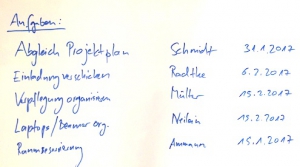 Aufgaben:
Abgleich Projektplan Schmidt 31.1.2017
Einladung verschicken Radtke 6.2.2017
Verpflegung organisieren Müller 15.2.2017
Laptops/Beamer org. 15.2.2017
Raumreservierung Ammann 15.1.2017